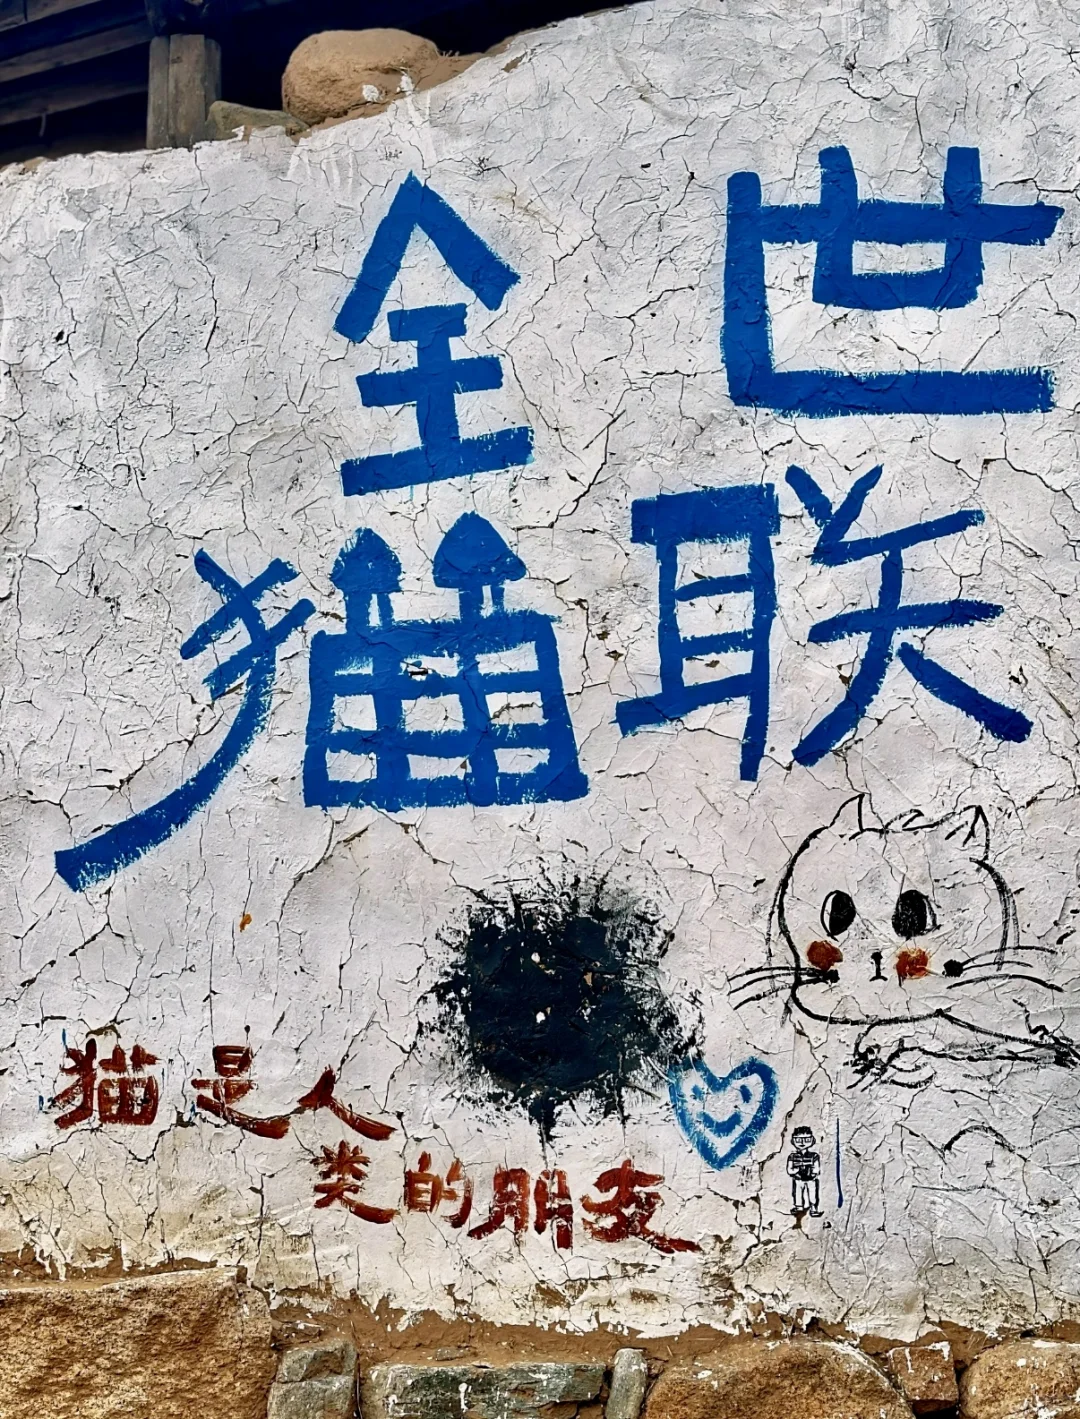 全世
猫联
猫是人
类的朋友